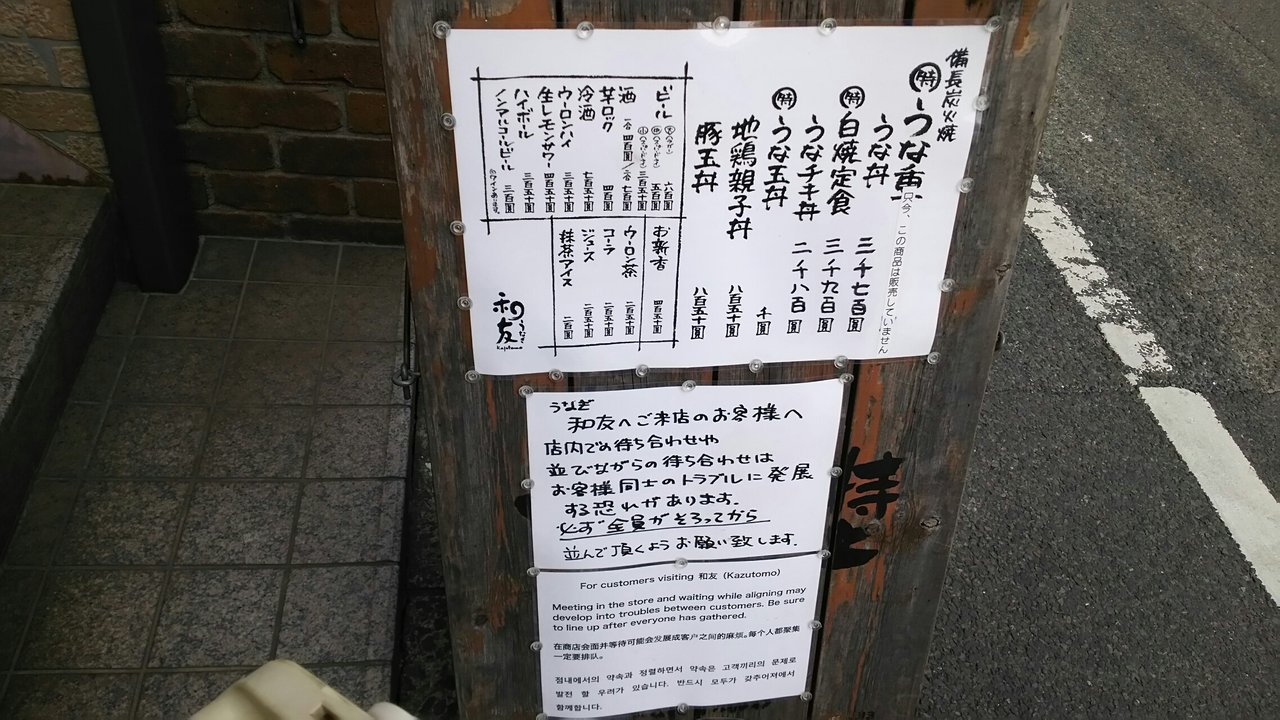 備長炭火焼
特 うな重
只今、この商品は販売していません
うな丼 三千七百圓
特 白焼定食 三千九百圓
うなチキ丼 二千八百圓
特 うな玉丼 千圓
地鶏親子丼 八百五十圓
豚玉丼 八百五十圓
ビール
六百圓
五百圓
三百五十圓
酒 一合 四百圓/二合 七百圓
芋ロック 四百圓
冷酒 七百五十圓
ウーロンハイ 三百五十圓
生レモンサワー 四百五十圓
ハイボール 三百五十圓
ノンアルコールビール 三百圓
お新香 四百五十圓
ウーロン茶 二百五十圓
コーラ 二百五十圓
ジュース 二百五十圓
抹茶アイス 二百圓
うなぎ 和友
Kazutomo
うなぎ
和友へご来店のお客様へ
店内でお待ち合わせや
並びながらの待ち合わせは
お客様同士のトラブルに発展
する恐れがあります。
必ず全員がそろってから
並んで頂くようお願い致します。
For customers visiting 和友 (Kazutomo)
Meeting in the store and waiting while aligning may
develop into troubles between customers. Be sure
to line up after everyone has gathered.
在商店会面并等待可能会发展成客户之间的麻烦。每个人都聚集
一定要排队。
점내에서의 약속과 정렬하면서 약속은 고객끼리의 문제로
발전 할 우려가 있습니다. 반드시 모두가 갖추어져에서
함께합니다.